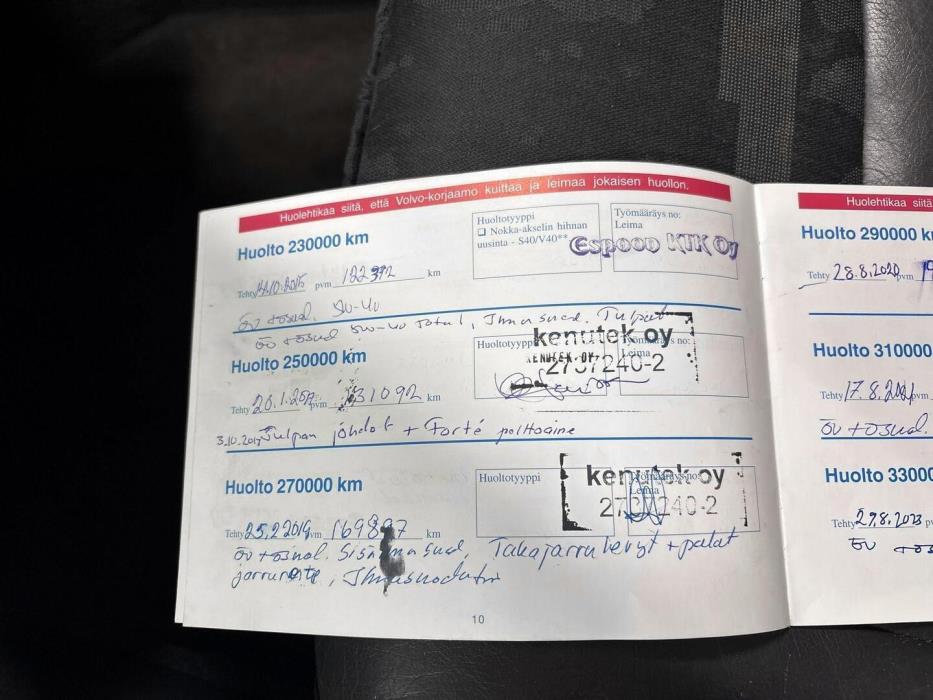 Huolehtikaa siitä, että Volvo-korjaamo kuittaa ja leimaa jokaisen huollon.
Huolto 230000 km
Huoltotyyppi
❑ Nokka-akselin hihnan
uusinta - S40/V40**
Työmääräys no:
Leima
Espoon KTK Oy
Tehty 10.2015 pvm 122392 km
öv + ösuod. 5W-40
öv + ösuod 5W-40 Total, Ilmasuod. Tulpat
Huolto 250000 km
Huoltotyyppi
Työmääräys no:
Leima
kenutek oy
KENUTEK OY
2737240-2
Tehty 20.1.2017 pvm 131092 km
3.10.2017 Tulpan johdot + Forté polttoaine
Huolto 270000 km
Huoltotyyppi
Työmääräys no:
Leima
kenutek oy
2737240-2
Tehty 25.2.2019 pvm km
öv + ösuod. Sisäilmasuod, Takajarrulevyt + palat
jarruneste, Ilmansuodatin
10
Huolehtikaa siitä
Huolto 290000
Tehty 28.8.2020 pvm
Huolto 310000
Tehty 17.8.2021 pvm
öv + ösuod.
Huolto 33000
Tehty 29.8.2023
öv